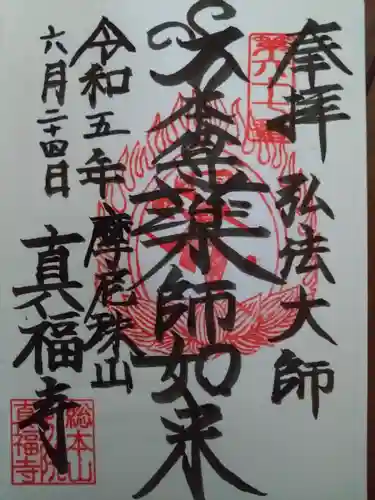 奉拝
弘法大師
第六十七番
本尊薬師如来
令和五年
六月二十四日
摩尼珠山
真福寺
総本山
真福寺